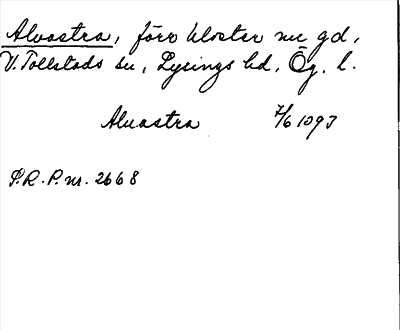 Alvastra, förr kloster nu gd,
V. Tollstads sn, Lysings hd, Ög. l.
Alvastra 7/6 1093
S.R.P. nr. 2668